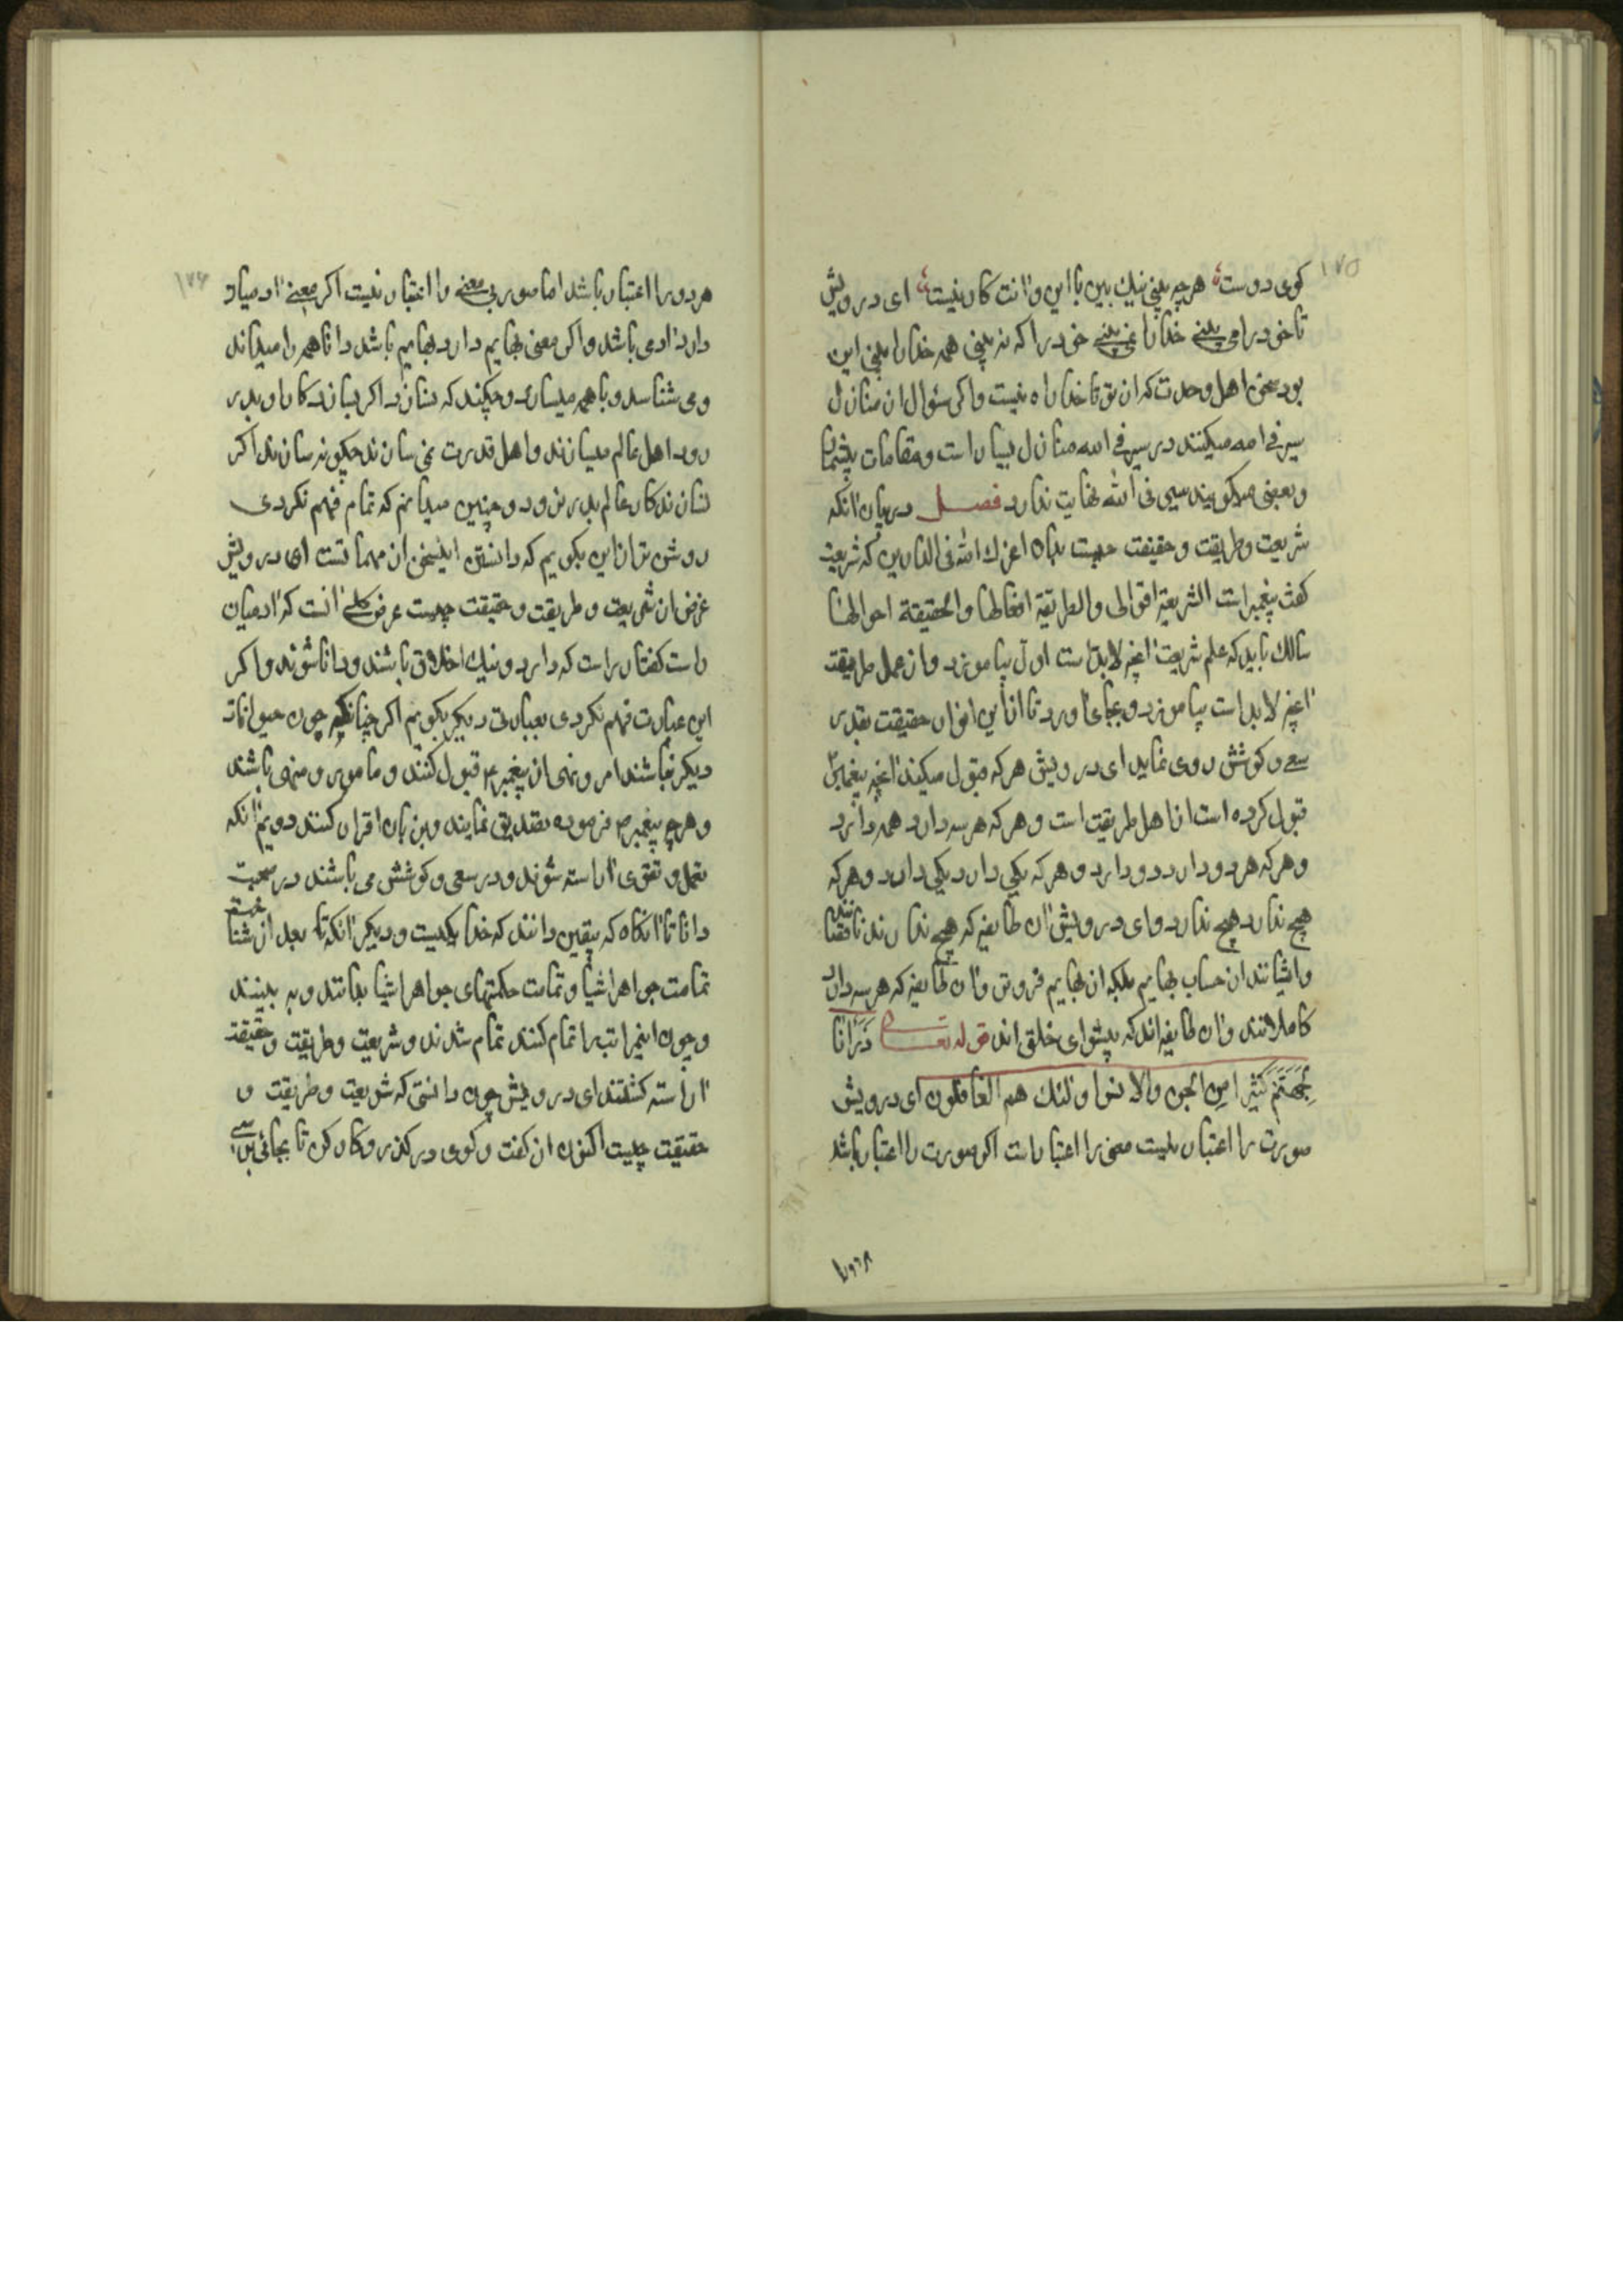 ۱۷۵
کوی دوست هرچه بینی نیك بین با این و آنت کار نیست ای درویش
تا خود را می بینے خدا را نمی بینے خود را که نه بینی همه خدا را بینی این
بود سخن اهل وحدت که از تو تا خدا راه نیست واکر سئوال از منازل
سیر فی الله میکنند در سیر فے الله منازل بسیار است ومقامات بیشمار
وبعضی میکویند سیر فی الله نهایت ندارد فصل در بیان آنکه
شریعت وطریقت وحقیقت چیست بدان اعزك الله فی الدارین که شریعت
کفت پیغمبر است الشریعة اقوالی والطریقة افعالها والحقیقة احوالها
سالك باید که علم شریعت آنچه لابد است اول بیاموزد واز عمل طریقت
آنچه لابد است بیاموزد وبجای آورد تا از این انوار حقیقت بقدر
سعے وکوشش روی نماید ای درویش هرکه قبول میکند آنچه پیغمبر
قبول کرده است از اهل طریقت است وهرکه هر سه دارد همه دارد
وهرکه هر دو دارد دو دارد وهرکه یکی دارد یکی دارد وهرکه
هیچ ندارد هیچ ندارد وای درویش آن طایفه که هیچ ندارند ناقصانند
وایشانند از حساب بهایم بلکه از بهایم فروتر وآن طایفه که هر سه دارند
کاملانند وآن طایفه اند که پیشوای خلق اند قوله تعالی ذَرَأنا
لِجَهَنَّمَ كَثیرا مِن الجن والانس اولئك هم الغافلون ای درویش
صورت را اعتبار نیست معنی را اعتبار است اکر صورت را اعتبار باشد
هردو را
۱۷۶
هردو را اعتبار باشد اما صورت بی معنے را اعتبار نیست اکر معنے آدمیان
دارد آدمی باشد واکر معنی بهایم دارد بهایم باشد دانا همه را میداند
ومی شناسد وبا همه میسازد وچکند که نسازد اکر نسازد کار او بدر
رود اهل عالم میسازند واهل قدرت نمی سازند چکونه سازند اکر
نسازند کار عالم بدر نرود وچنین میدانم که تمام فهم نکردی
روشن تر از این بکویم که دانستن اینسخن از مهماتست ای درویش
غرض از شریعت وطریقت وحقیقت چیست غرض کلے آنست که آدمیان
راست کفتار راست کردار ونیك اخلاق باشند ودانا شوند واکر
این عبارت فهم نکردی بعبارتی دیکر بکویم اکر چنانکه چون حیوانات
دیکر نباشند امر ونهی از پیغمبر ۴ قبول کنند ومامور ومنهی باشند
وهرچه پیغمبر ص فرموده تصدیق نمایند وبزبان اقرار کنند دویم آنکه
بعمل وتقوی آراسته شوند ودر سعی وکوشش می باشند در صحبت
دانا تا آنکاه که بیقین دانند که خدا یکیست ودیکر آنکه تا بعد از شناخت خدا
تمامت جواهر اشیا وتمامت حکمتهای جواهر اشیا بدانند وبه بینند
وچون اینمراتب را تمام کنند تمام شدند وشریعت وطریقت وحقیقت
آراسته کشتند ای درویش چون دانستی که شریعت وطریقت و
حقیقت چیست اکنون از کفت وکوی درکذر وکار کن تا بجائی برسے